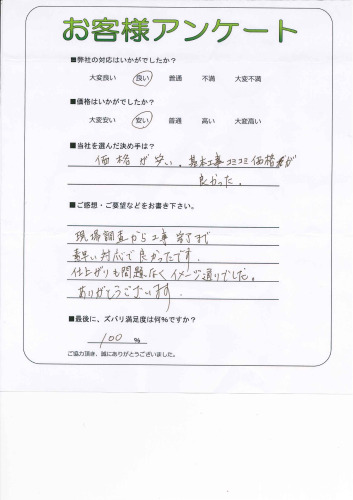 お客様アンケート
■弊社の対応はいかがでしたか?
大変良い 良い 普通 不満 大変不満
■価格はいかがでしたか?
大変安い 安い 普通 高い 大変高い
■当社を選んだ決め手は?
価格が安い。基本工事コミコミ価格が
良かった。
■ご感想・ご要望などをお書き下さい。
現場調査から工事完了まで
素早い対応で良かったです。
仕上がりも問題なくイメージ通りでした。
ありがとうございます。
■最後に、ズバリ満足度は何%ですか?
100 %
ご協力頂き、誠にありがとうございました。